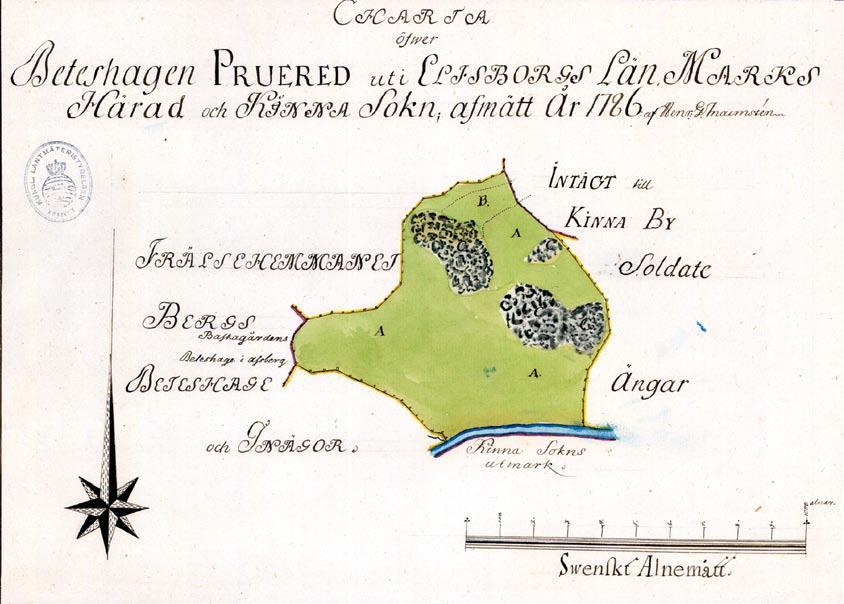 CHARTA
öfwer
Beteshagen PRUERED uti ELFSBORGS Län, MARKS
Härad och KINNA Sokn; afmätt År 1786 af
KONGL. LANTMÄTERISTYRELSEN
INTÅGT till
KINNA BY
B.
A
FRÄLSEHEMMANET
Soldate
BERGS
Bastagårdens
A
C
Beteshage i afsberg
BETESHAGE
A.
Ängar
och INÄGOR.
Kinna Sokns
utmark.
alnar.
Swenskt Alnemått.